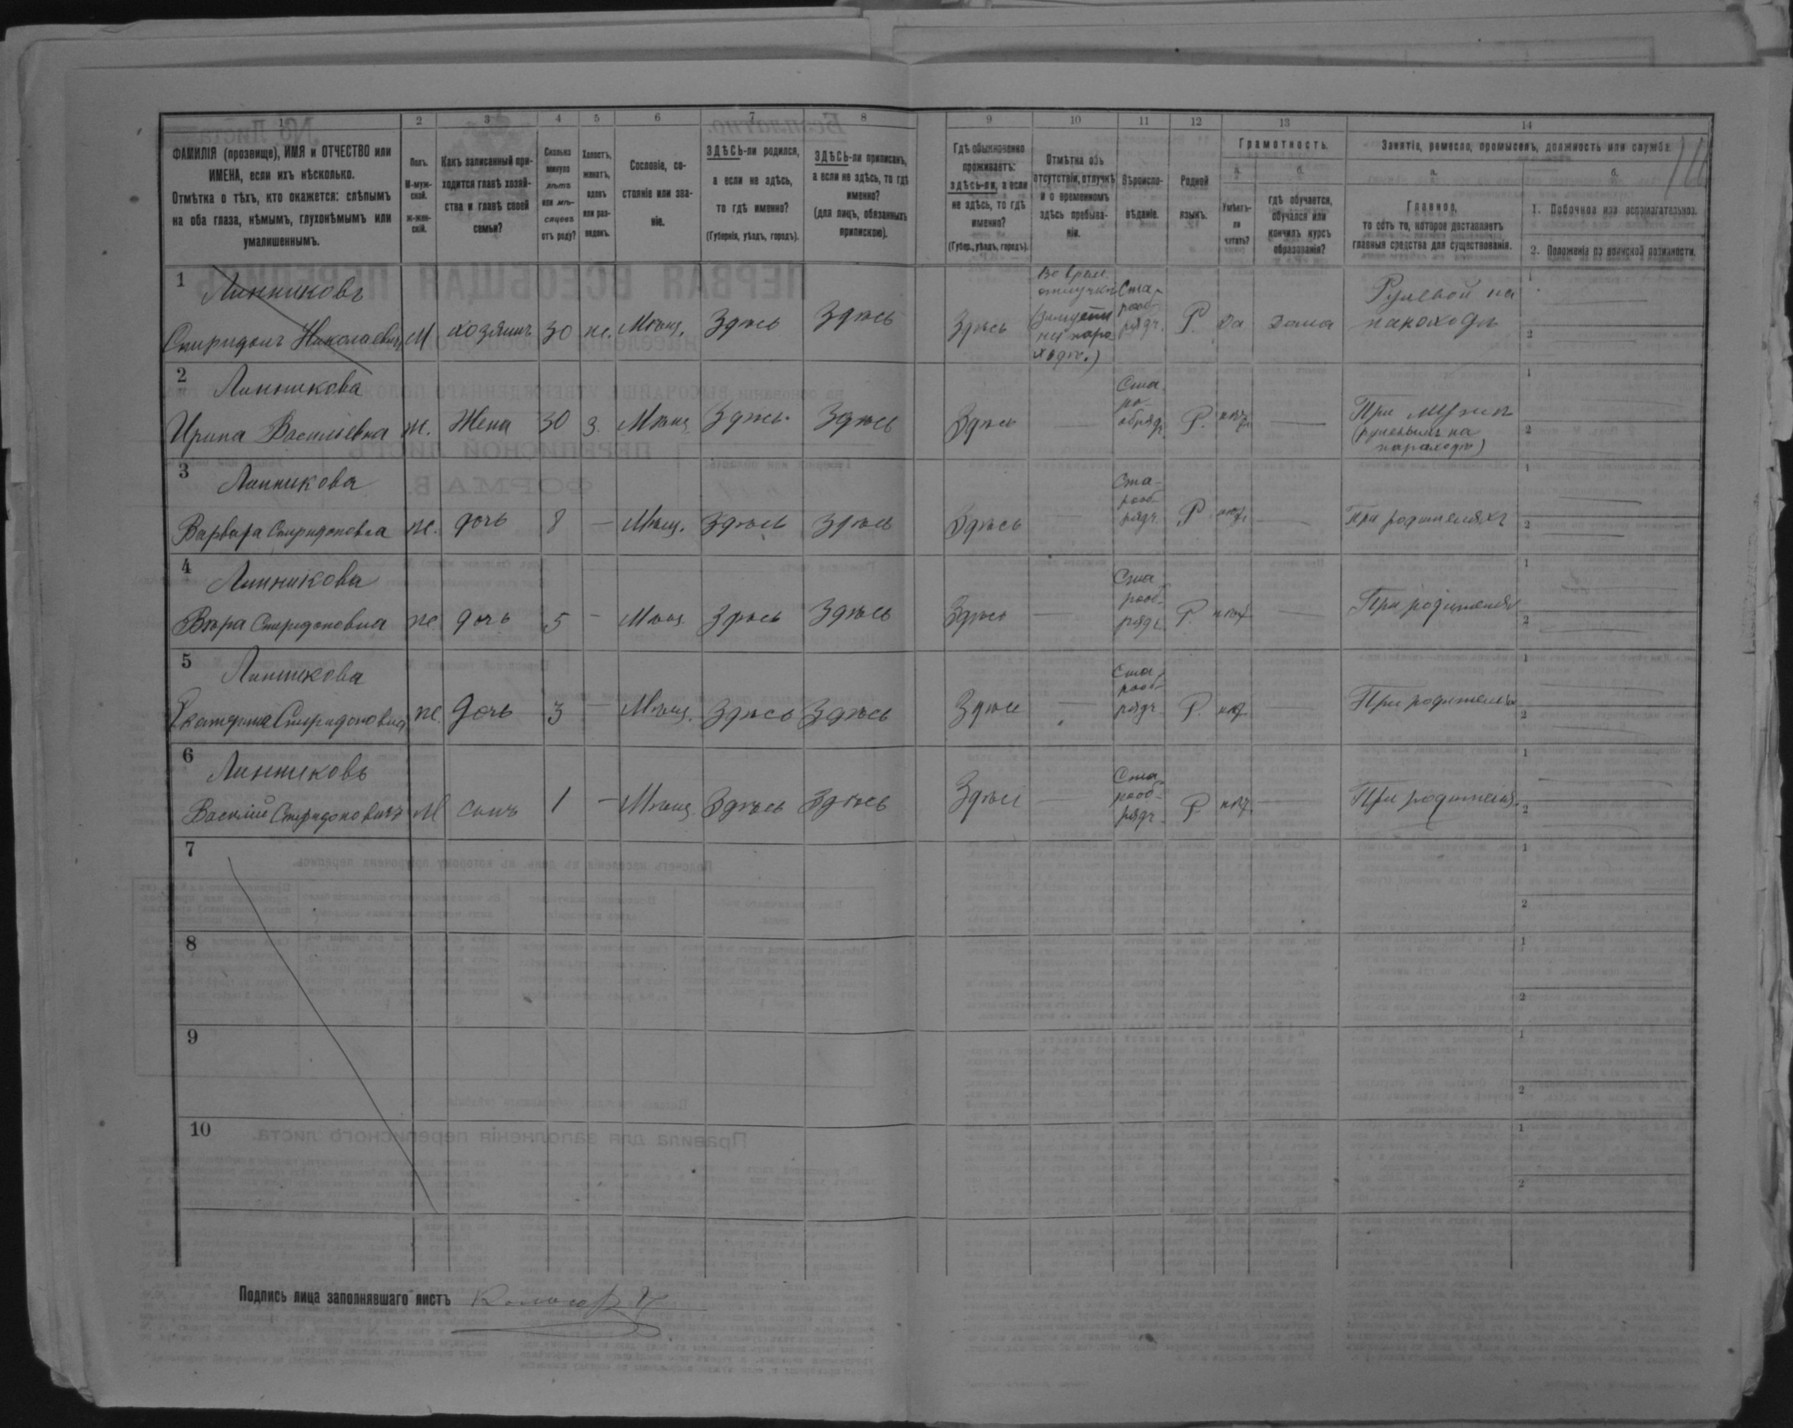 1 2 3 4 5 6 7 8 9 10 11 12 13 14
ФАМИЛІЯ (прозвище), ИМЯ и ОТЧЕСТВО или
ИМЕНА, если ихъ нѣсколько.
Отмѣтка о тѣхъ, кто окажется: слѣпымъ
на оба глаза, нѣмымъ, глухонѣмымъ или
умалишеннымъ.
Полъ.
М-муж-
ской.
ж-жен-
скій.
Какъ записанный при-
ходится главѣ хозяй-
ства и главѣ своей
семьи?
Сколько
минуло
лѣтъ
или мѣ-
сяцевъ
отъ роду?
Холостъ,
женатъ,
вдовъ
или раз-
веденъ.
Сословіе, со-
стояніе или зва-
ніе.
ЗДѢСЬ-ли родился,
а если не здѣсь,
то гдѣ именно?
(Губернія, уѣздъ, городъ).
ЗДѢСЬ-ли приписанъ,
а если не здѣсь, то гдѣ
именно?
(для лицъ, обязанныхъ
припискою).
Гдѣ обыкновенно
проживаетъ:
здѣсь-ли, а если
не здѣсь, то гдѣ
именно?
(Губер., уѣздъ, городъ).
Отмѣтка объ
отсутствіи, отлучкѣ
и о временномъ
здѣсь пребыва-
ніи.
Вѣроиспо-
вѣданіе.
Родной
языкъ.
Грамотность.
а.
Умѣетъ-
ли
читать?
б.
гдѣ обучается,
обучался или
кончилъ курсъ
образованія?
Занятіе, ремесло, промыселъ, должность или служба.
а.
Главное,
то есть то, которое доставляетъ
главныя средства для существованія.
б.
1. Побочное или вспомогательное.
2. Положеніе по воинской повинности.
1 Линниковъ
Спиридонъ Николаевичъ М хозяинъ 30 ж. Мѣщ. Здѣсь Здѣсь Здѣсь
Во врем.
отлучкѣ
(зимуетъ
на паро
ходѣ.)
Ста-
рооб-
рядч. Р. да дома
Рулевой на
пароходѣ
2 Линникова
Ирина Васильевна ж. Жена 30 з. Мѣщ Здѣсь Здѣсь Здѣсь —
Ста
ро-
обрядч. Р. —
При мужѣ
(рулевымъ на
пароходѣ)
3 Линникова
Варвара Спиридоновна ж. дочь 8 — Мѣщ. Здѣсь Здѣсь Здѣсь —
Ста-
рооб
рядч. Р —
При родителяхъ
4 Линникова
Вѣра Спиридоновна ж дочь 5 — Мѣщ Здѣсь Здѣсь Здѣсь —
Ста
рооб-
рядч Р. —
При родителях
5 Линникова
Екатерина Спиридоновна ж. дочь 3 — Мѣщ. Здѣсь Здѣсь Здѣсь —
Ста
рооб-
рядч. Р. —
При родителях
6 Линниковъ
Василій Спиридоновичъ М сынъ 1 — Мѣщ. Здѣсь Здѣсь Здѣсь —
Ста
рооб-
рядч. Р. —
При родителях.
7
8
9
10
Подпись лица заполнявшаго листъ